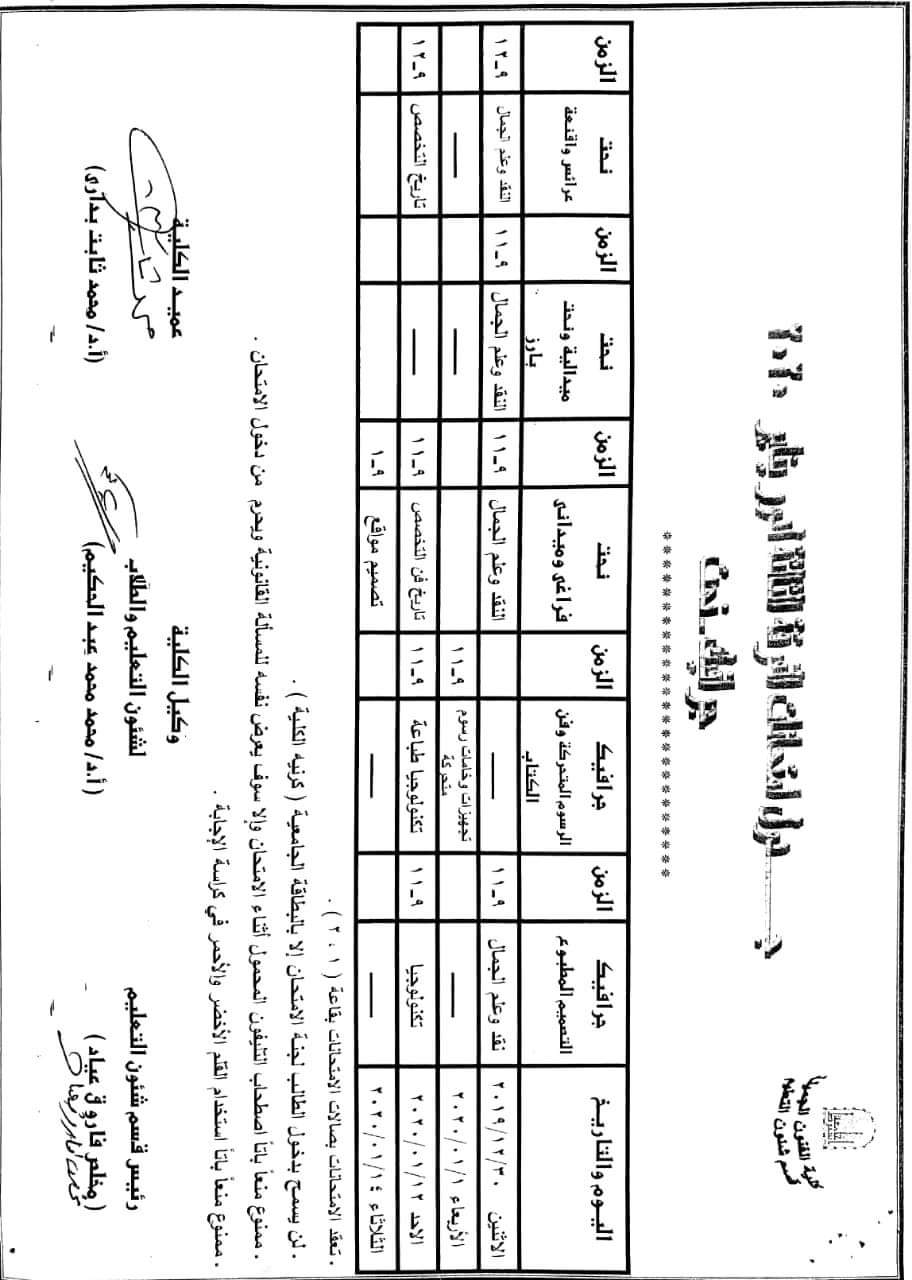 كلية الفنون الجميلة
قسم شئون التعليم
جدول امتحانات الفرقة الثالثة الدور يناير ٢٠٢٠
جرافيك _ نحت
********************
اليوم والتاريخ | جرافيك التصميم المطبوع | الزمن | جرافيك الرسوم المتحركة وفن الكتاب | الزمن | نحت فراغى وميدانى | الزمن | نحت ميدالية ونحت بارز | الزمن | نحت عرائس واقنعة | الزمن
الاثنين ٢٠١٩/١٢/٣٠ | نقد وعلم الجمال | ٩_١١ | — | | النقد وعلم الجمال | ٩_١١ | النقد وعلم الجمال | ٩_١١ | النقد وعلم الجمال | ٩_١٢
الأربعاء ٢٠٢٠/٠١/١ | — | | تجهيزات وخامات رسوم متحركة | ٩_١١ | | | — | | — |
الاحد ٢٠٢٠/٠١/١٢ | تكنولوجيا | ٩_١١ | تكنولوجيا طباعة | ٩_١١ | تاريخ فن التخصص | ٩_١١ | — | | تاريخ التخصص | ٩_١٢
الثلاثاء ٢٠٢٠/٠١/١٤ | — | | — | | تصميم مواقع | ٩_١
. تعقد الامتحانات بصالات الامتحانات بقاعة ( ١ ، ٢ ) .
. لن يسمح بدخول الطالب لجنة الامتحان إلا بالبطاقة الجامعية ( كرنيه الكلية ) .
. ممنوع منعاً باتاً اصطحاب التليفون المحمول أثناء الامتحان وإلا سوف يعرض نفسه للمسألة القانونية ويحرم من دخول الامتحان .
. ممنوع منعاً باتاً استخدام القلم الأخضر والأحمر في كراسة الإجابة .
رئيس قسم شئون التعليم
(مخلص فاروق عياد)
وكيل الكلية
لشئون التعليم والطلاب
(أ.د/ محمد محمد عبد الحكيم)
عميد الكلية
(أ.د/ محمد ثابت بدارى)